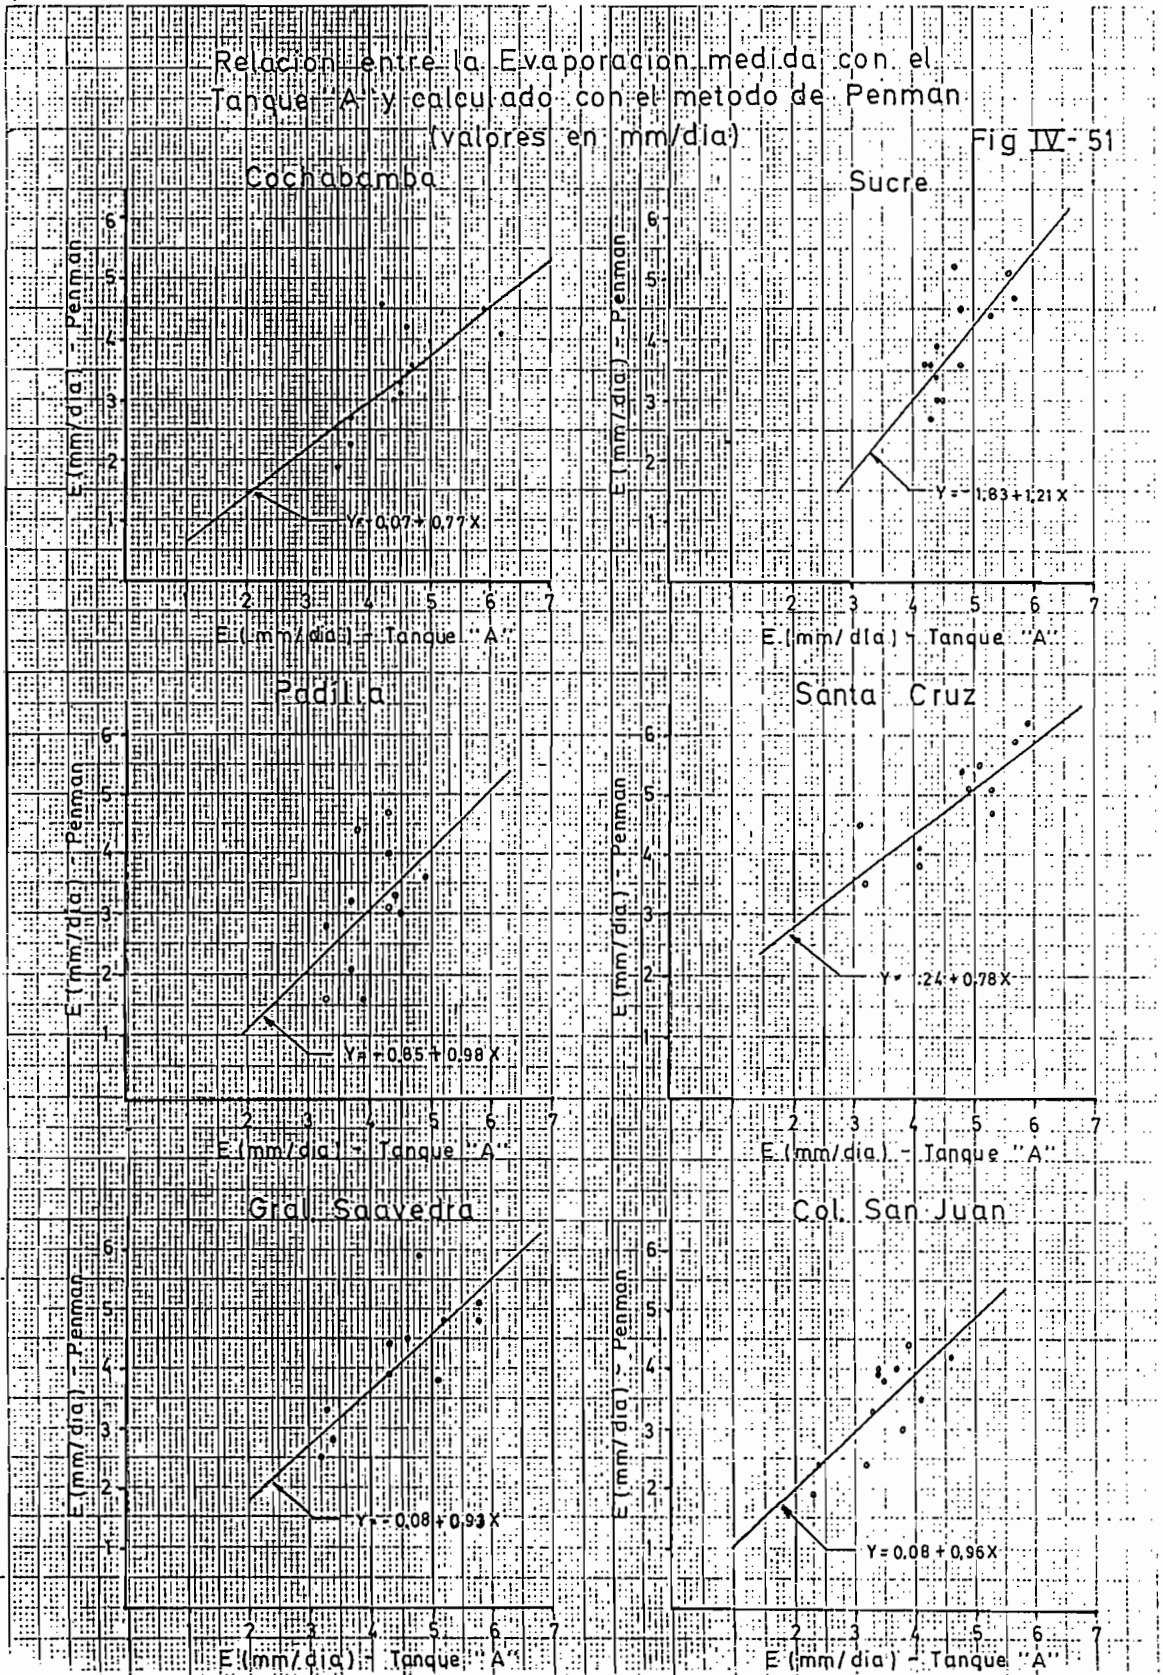 Relacion entre la Evaporacion medida con el
Tanque "A" y calculado con el metodo de Penman
(valores en mm/dia)
Fig IV-51
Cochabamba
E (mm/dia) - Penman
6
5
4
3
2
1
Y=-0.07+0.77X
1 2 3 4 5 6 7
E (mm/dia) - Tanque "A"
Sucre
E (mm/dia) - Penman
6
5
4
3
2
1
Y=-1.83+1.21X
2 3 4 5 6 7
E (mm/dia) - Tanque "A"
Padilla
E (mm/dia) - Penman
6
5
4
3
2
1
Y=-0.85+0.98X
2 3 4 5 6 7
E (mm/dia) - Tanque "A"
Santa Cruz
E (mm/dia) - Penman
6
5
4
3
2
1
Y= .24+0.78X
2 3 4 5 6 7
E (mm/dia) - Tanque "A"
Gral. Saavedra
E (mm/dia) - Penman
6
5
4
3
2
1
Y=-0.08+0.93X
2 3 4 5 6 7
E (mm/dia) - Tanque "A"
Col. San Juan
E (mm/dia) - Penman
6
5
4
3
2
1
Y=0.08+0.96X
2 3 4 5 6 7
E (mm/dia) - Tanque "A"